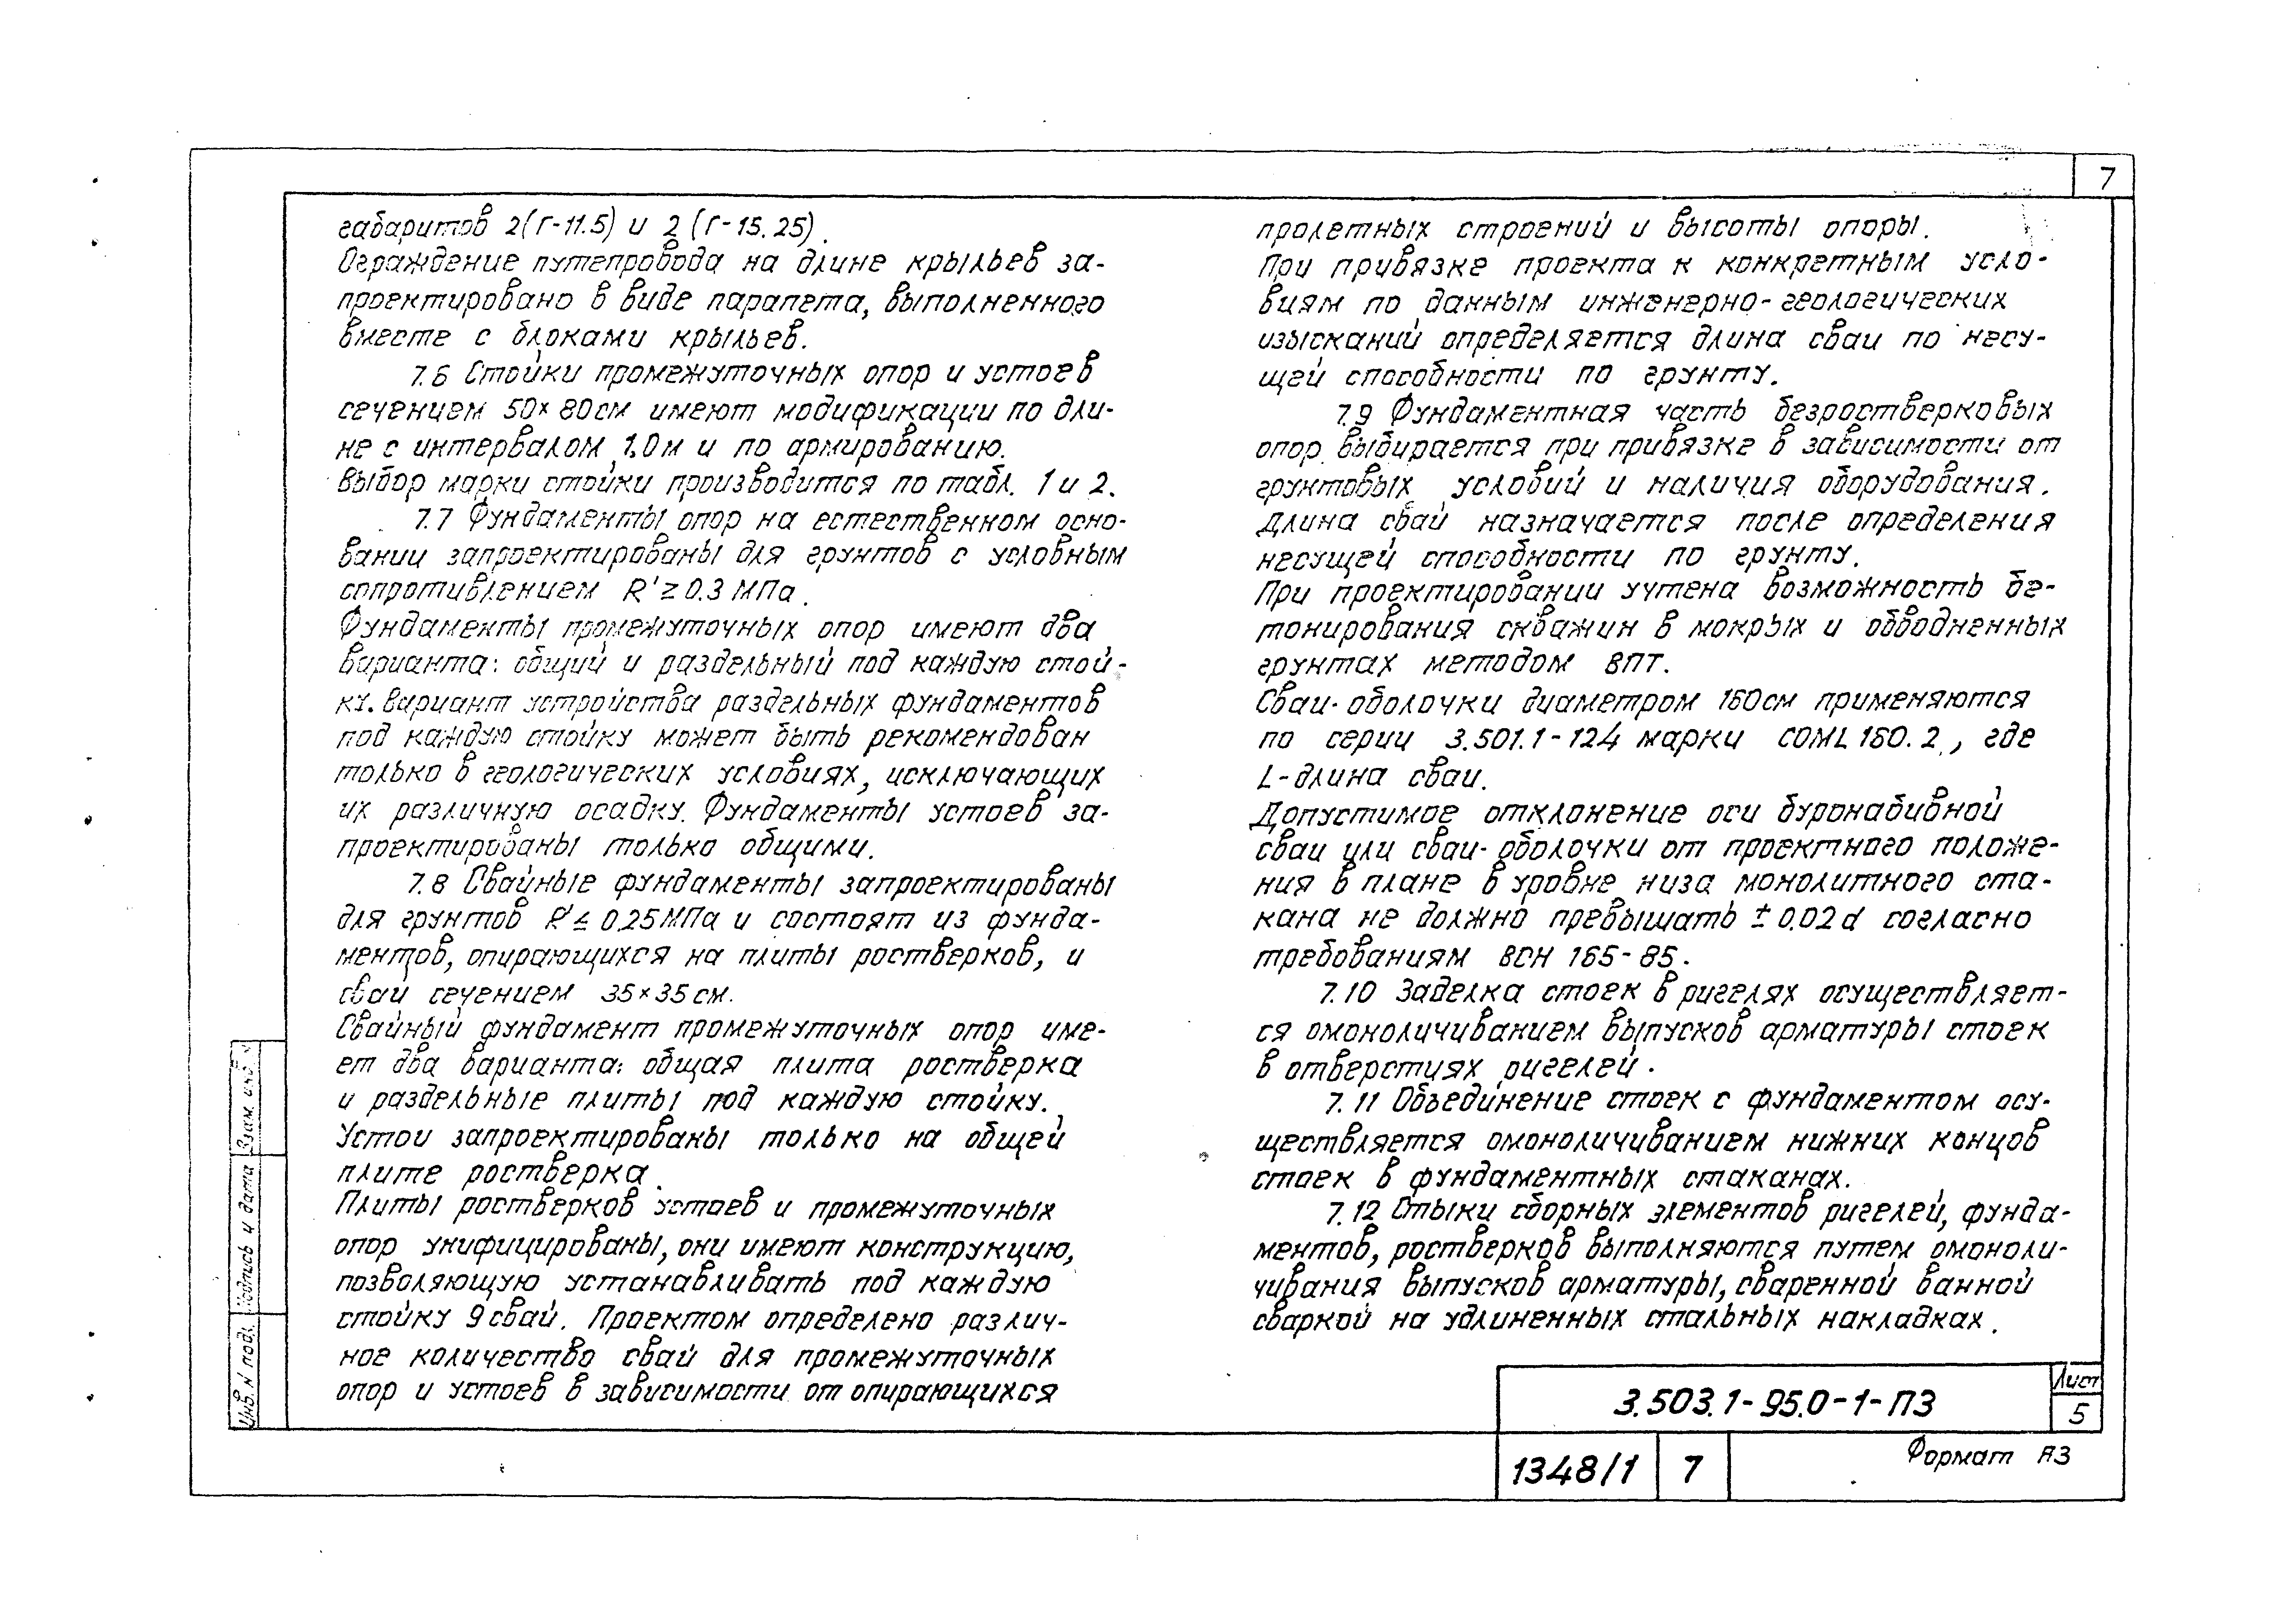 7
габаритов 2(Г-11.5) и 2 (Г-15.25).
Ограждение путепровода на длине крыльев за-
проектировано в виде парапета, выполненного
вместе с блоками крыльев.
7.6 Стойки промежуточных опор и устоев
сечением 50×80см имеют модификации по дли-
не с интервалом 1.0м и по армированию.
Выбор марки стойки производится по табл. 1 и 2.
7.7 Фундаменты опор на естественном осно-
вании запроектированы для грунтов с условным
сопротивлением R'≥0.3 МПа.
Фундаменты промежуточных опор имеют два
варианта: общий и раздельный под каждую стой-
ку. Вариант устройства раздельных фундаментов
под каждую стойку может быть рекомендован
только в геологических условиях, исключающих
их различную осадку. Фундаменты устоев за-
проектированы только общими.
7.8 Свайные фундаменты запроектированы
для грунтов R'≤ 0.25МПа и состоят из фунда-
ментов, опирающихся на плиты ростверков, и
свай сечением 35×35см.
Свайный фундамент промежуточных опор име-
ет два варианта: общая плита ростверка
и раздельные плиты под каждую стойку.
Устои запроектированы только на общей
плите ростверка.
Плиты ростверков устоев и промежуточных
опор унифицированы, они имеют конструкцию,
позволяющую устанавливать под каждую
стойку 9 свай. Проектом определено различ-
ное количество свай для промежуточных
опор и устоев в зависимости от опирающихся
пролетных строений и высоты опоры.
При привязке проекта к конкретным усло-
виям по данным инженерно-геологических
изысканий определяется длина сваи по несу-
щей способности по грунту.
7.9 Фундаментная часть безростверковых
опор выбирается при привязке в зависимости от
грунтовых условий и наличия оборудования.
Длина свай назначается после определения
несущей способности по грунту.
При проектировании учтена возможность бе-
тонирования скважин в мокрых и обводненных
грунтах методом ВПТ.
Сваи-оболочки диаметром 160см применяются
по серии 3.501.1-124 марки СОМL160.2, где
L-длина сваи.
Допустимое отклонение оси буронабивной
сваи или сваи-оболочки от проектного положе-
ния в плане в уровне низа монолитного ста-
кана не должно превышать ±0.02d согласно
требованиям ВСН 165-85.
7.10 Заделка стоек в ригелях осуществляет-
ся омоноличиванием выпусков арматуры стоек
в отверстиях ригелей.
7.11 Объединение стоек с фундаментом осу-
ществляется омоноличиванием нижних концов
стоек в фундаментных стаканах.
7.12 Стыки сборных элементов ригелей, фунда-
ментов, ростверков выполняются путем омоноли-
чивания выпусков арматуры, сваренной ванной
сваркой на удлиненных стальных накладках.
Взам. инв. N
Подпись и дата
Инв. N подл.
3.503.1-95.0-1-ПЗ
Лист
5
1348/1
7
Формат А3